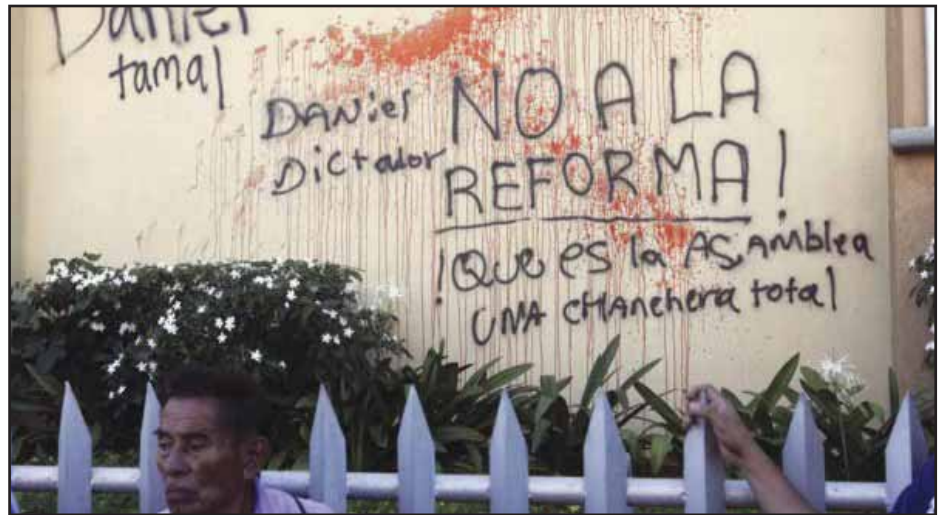 Daniel
tamal
DANiel
Dictador
NO A LA
REFORMA!
¡Que es la ASAmblea
UNA CHANchera total